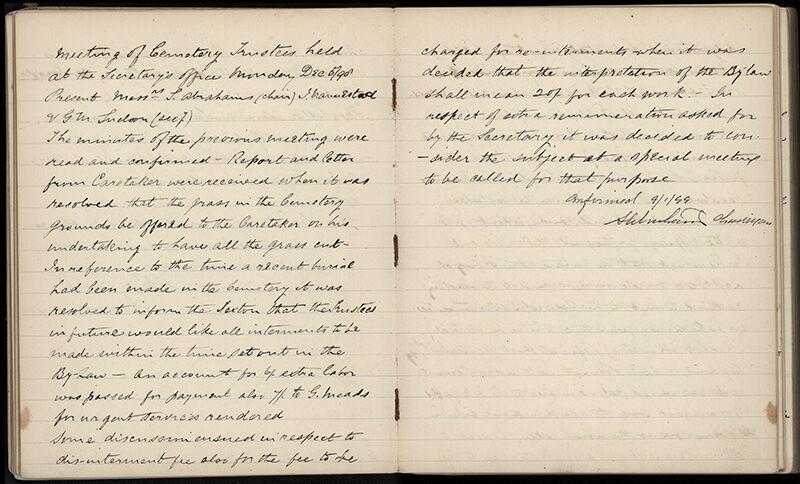 Meeting of Cemetery Trustees held
at the Secretary's office Monday Dec 5/98
Present Messrs S. Abrahams (chair) J.
& G M (Secy)
The minutes of the previous meeting were
read and confirmed – Report and letter
from Caretaker were received when it was
resolved that the grass in the Cemetery
grounds be offered to the Caretaker on his
undertaking to have all the grass cut –
In reference to the time a recent burial
had been made in the Cemetery it was
resolved to inform the Sexton that the Trustees
in future would like all interments to be
made within the time set out in the
By-Law – An account for 6/ extra labor
was passed for payment also 7/ to G. Meads
for urgent services rendered
Some discussion ensued in respect to
dis-interment fee also for the fee to be
charged for re-interments when it was
decided that the interpretation of the By law
shall mean 20/ for each work. – In
respect of extra remuneration asked for
by the Secretary it was decided to con-
-sider the subject at a special meeting
to be called for that purpose
Confirmed 9/1/99
S Abrahams Chairman